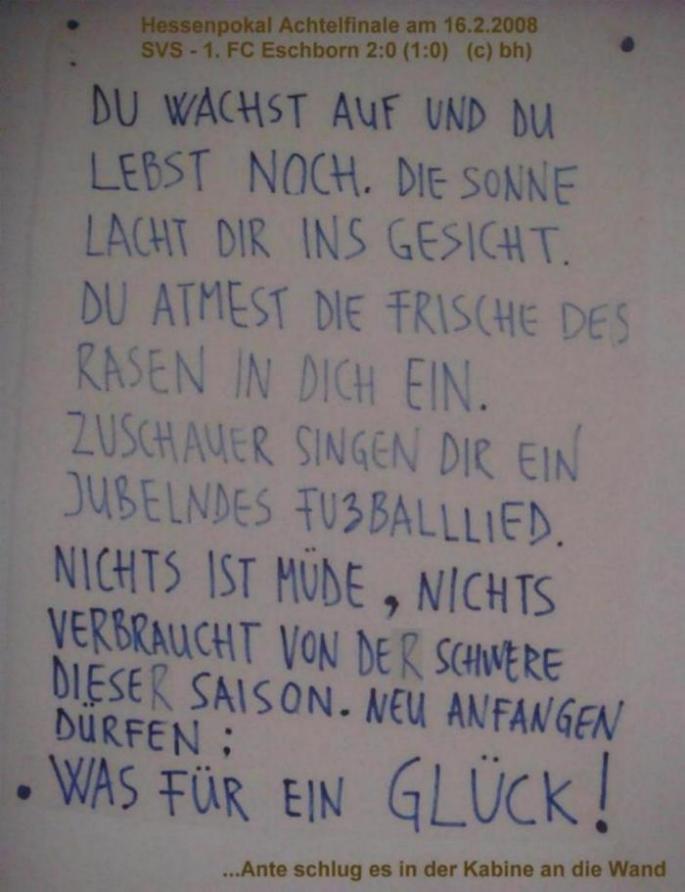 Hessenpokal Achtelfinale am 16.2.2008
SVS - 1. FC Eschborn 2:0 (1:0) (c) bh)
DU WACHST AUF UND DU
LEBST NOCH. DIE SONNE
LACHT DIR INS GESICHT.
DU ATMEST DIE FRISCHE DES
RASEN IN DICH EIN.
ZUSCHAUER SINGEN DIR EIN
JUBELNDES FUßBALLLIED.
NICHTS IST MÜDE, NICHTS
VERBRAUCHT VON DER SCHWERE
DIESER SAISON. NEU ANFANGEN
DÜRFEN;
WAS FÜR EIN GLÜCK!
...Ante schlug es in der Kabine an die Wand